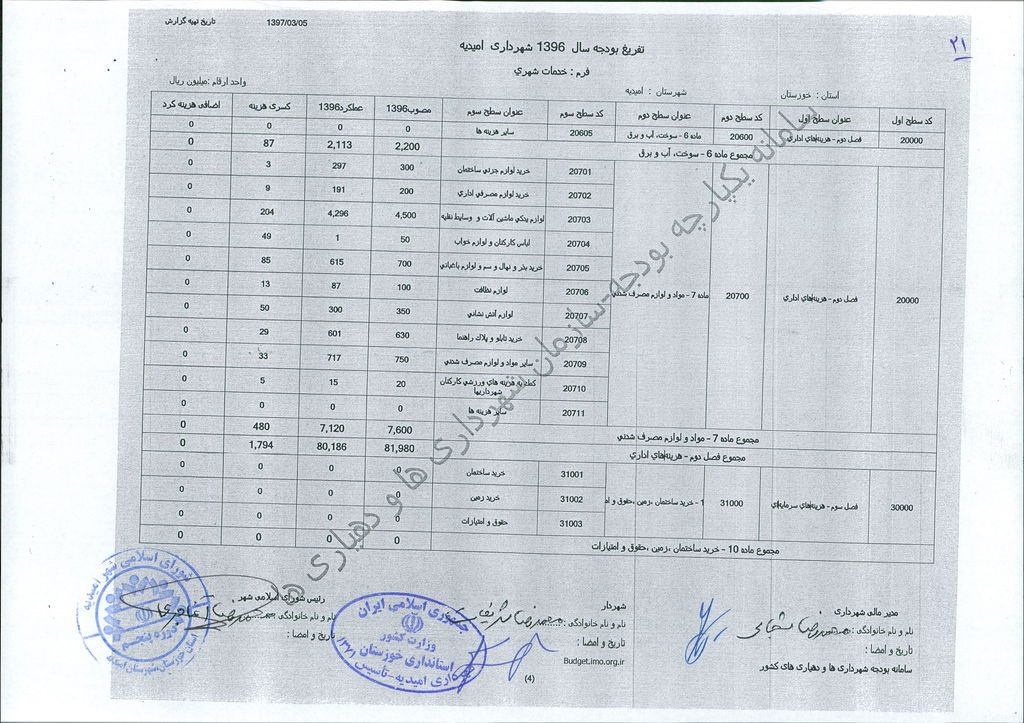 تاریخ تهیه گزارش 1397/03/05
۲۱
تفریغ بودجه سال 1396 شهرداری امیدیه
فرم : خدمات شهري
استان : خوزستان شهرستان : امیدیه واحد ارقام :میلیون ریال
کد سطح اول عنوان سطح اول کد سطح دوم عنوان سطح دوم کد سطح سوم عنوان سطح سوم مصوب1396 عملکرد1396 کسری هزینه اضافی هزینه کرد
20000 فصل دوم - هزینه‌هاي اداري 20600 ماده 6 - سوخت، آب و برق 20605 سایر هزینه ها 0 0 0 0
مجموع ماده 6 - سوخت، آب و برق 2,200 2,113 87 0
20000 فصل دوم - هزینه‌هاي اداري 20700 ماده 7 - مواد و لوازم مصرف شدني
20701 خرید لوازم جزئي ساختمان 300 297 3 0
20702 خرید لوازم مصرفي اداري 200 191 9 0
20703 لوازم یدکي ماشین آلات و وسایط نقلیه 4,500 4,296 204 0
20704 لباس کارکنان و لوازم خواب 50 1 49 0
20705 خرید بذر و نهال و سم و لوازم باغباني 700 615 85 0
20706 لوازم نظافت 100 87 13 0
20707 لوازم آتش نشاني 350 300 50 0
20708 خرید تابلو و پلاك راهنما 630 601 29 0
20709 سایر مواد و لوازم مصرف شدني 750 717 33 0
20710 کمك به هزینه هاي ورزشي کارکنان شهرداریها 20 15 5 0
20711 سایر هزینه ها 0 0 0 0
مجموع ماده 7 - مواد و لوازم مصرف شدني 7,600 7,120 480 0
مجموع فصل دوم - هزینه‌هاي اداري 81,980 80,186 1,794 0
30000 فصل سوم - هزینه‌هاي سرمایه‌اي 31000 1 - خرید ساختمان ،زمین ،حقوق و ام
31001 خرید ساختمان 0 0 0 0
31002 خرید زمین 0 0 0 0
31003 حقوق و امتیازات 0 0 0 0
مجموع ماده 10 - خرید ساختمان ،زمین ،حقوق و امتیازات 0 0 0 0
سامانه یکپارچه بودجه-سازمان شهرداری ها و دهیاری ها
مدیر مالی شهرداری شهردار رئیس شورای اسلامی شهر
نام و نام خانوادگی : نام و نام خانوادگی : محمدرضا شریفی نام و نام خانوادگی :
تاریخ و امضا : تاریخ و امضا : تاریخ و امضا :
سامانه بودجه شهرداری ها و دهیاری های کشور Budget.imo.ir
(4)
جمهوری اسلامی ایران
وزارت کشور
استانداری خوزستان
شهرداری امیدیه-تأسیس ۱۳۷۱
شورای اسلامی شهر امیدیه
دوره پنجم
استان خوزستان،شهرستان امیدیه